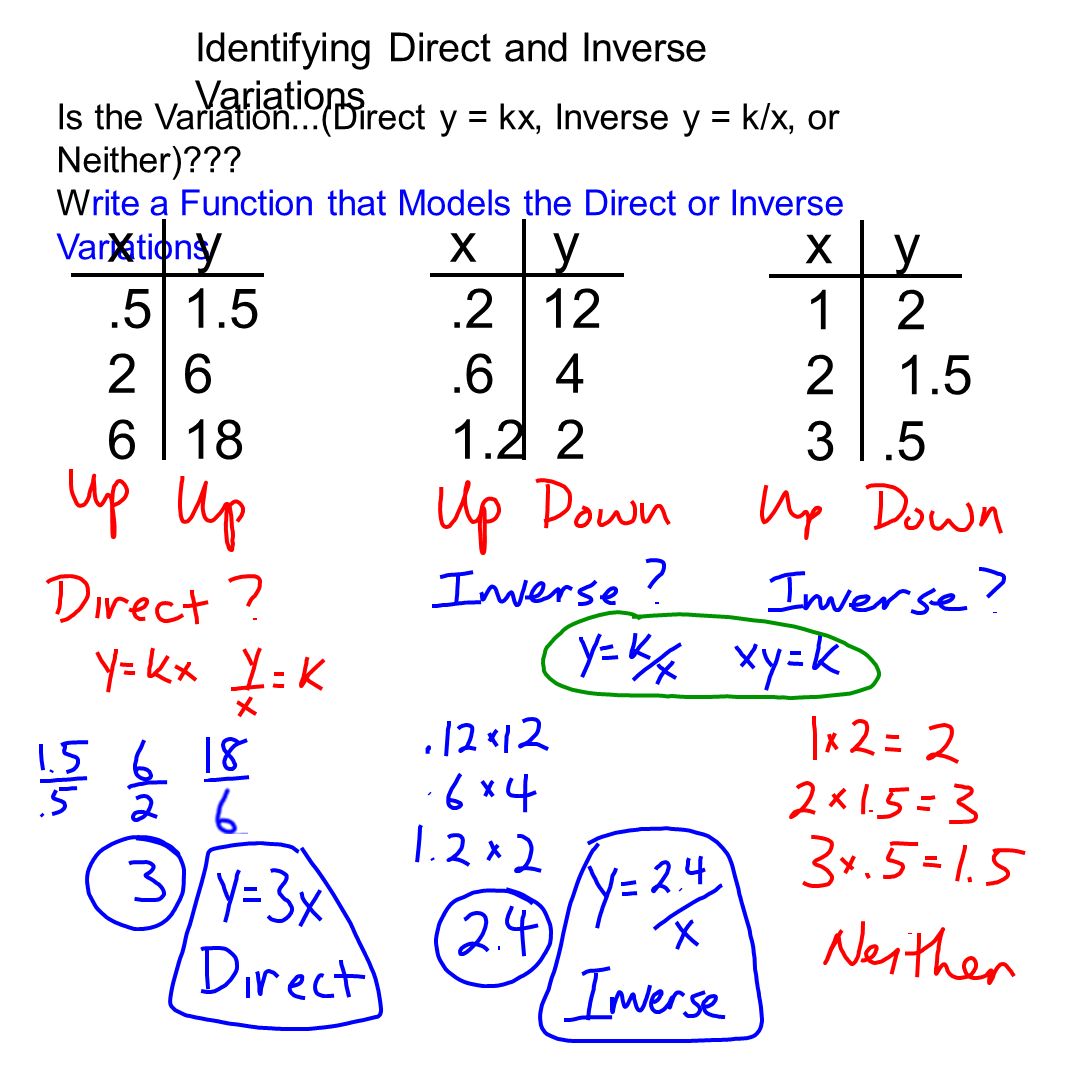 Identifying Direct and Inverse
Variations
Is the Variation...(Direct y = kx, Inverse y = k/x, or
Neither)???
Write a Function that Models the Direct or Inverse
Variations
x y
.5 1.5
2 6
6 18
Up Up
Direct ?
y=kx y/x = k
1.5/.5 6/2 18/6
3
y=3x
Direct
x y
.2 12
.6 4
1.2 2
Up Down
Inverse ?
y=k/x xy=k
.12×12
.6×4
1.2×2
2.4
y=2.4/x
Inverse
x y
1 2
2 1.5
3 .5
Up Down
Inverse ?
1×2=2
2×1.5=3
3×.5=1.5
Neither